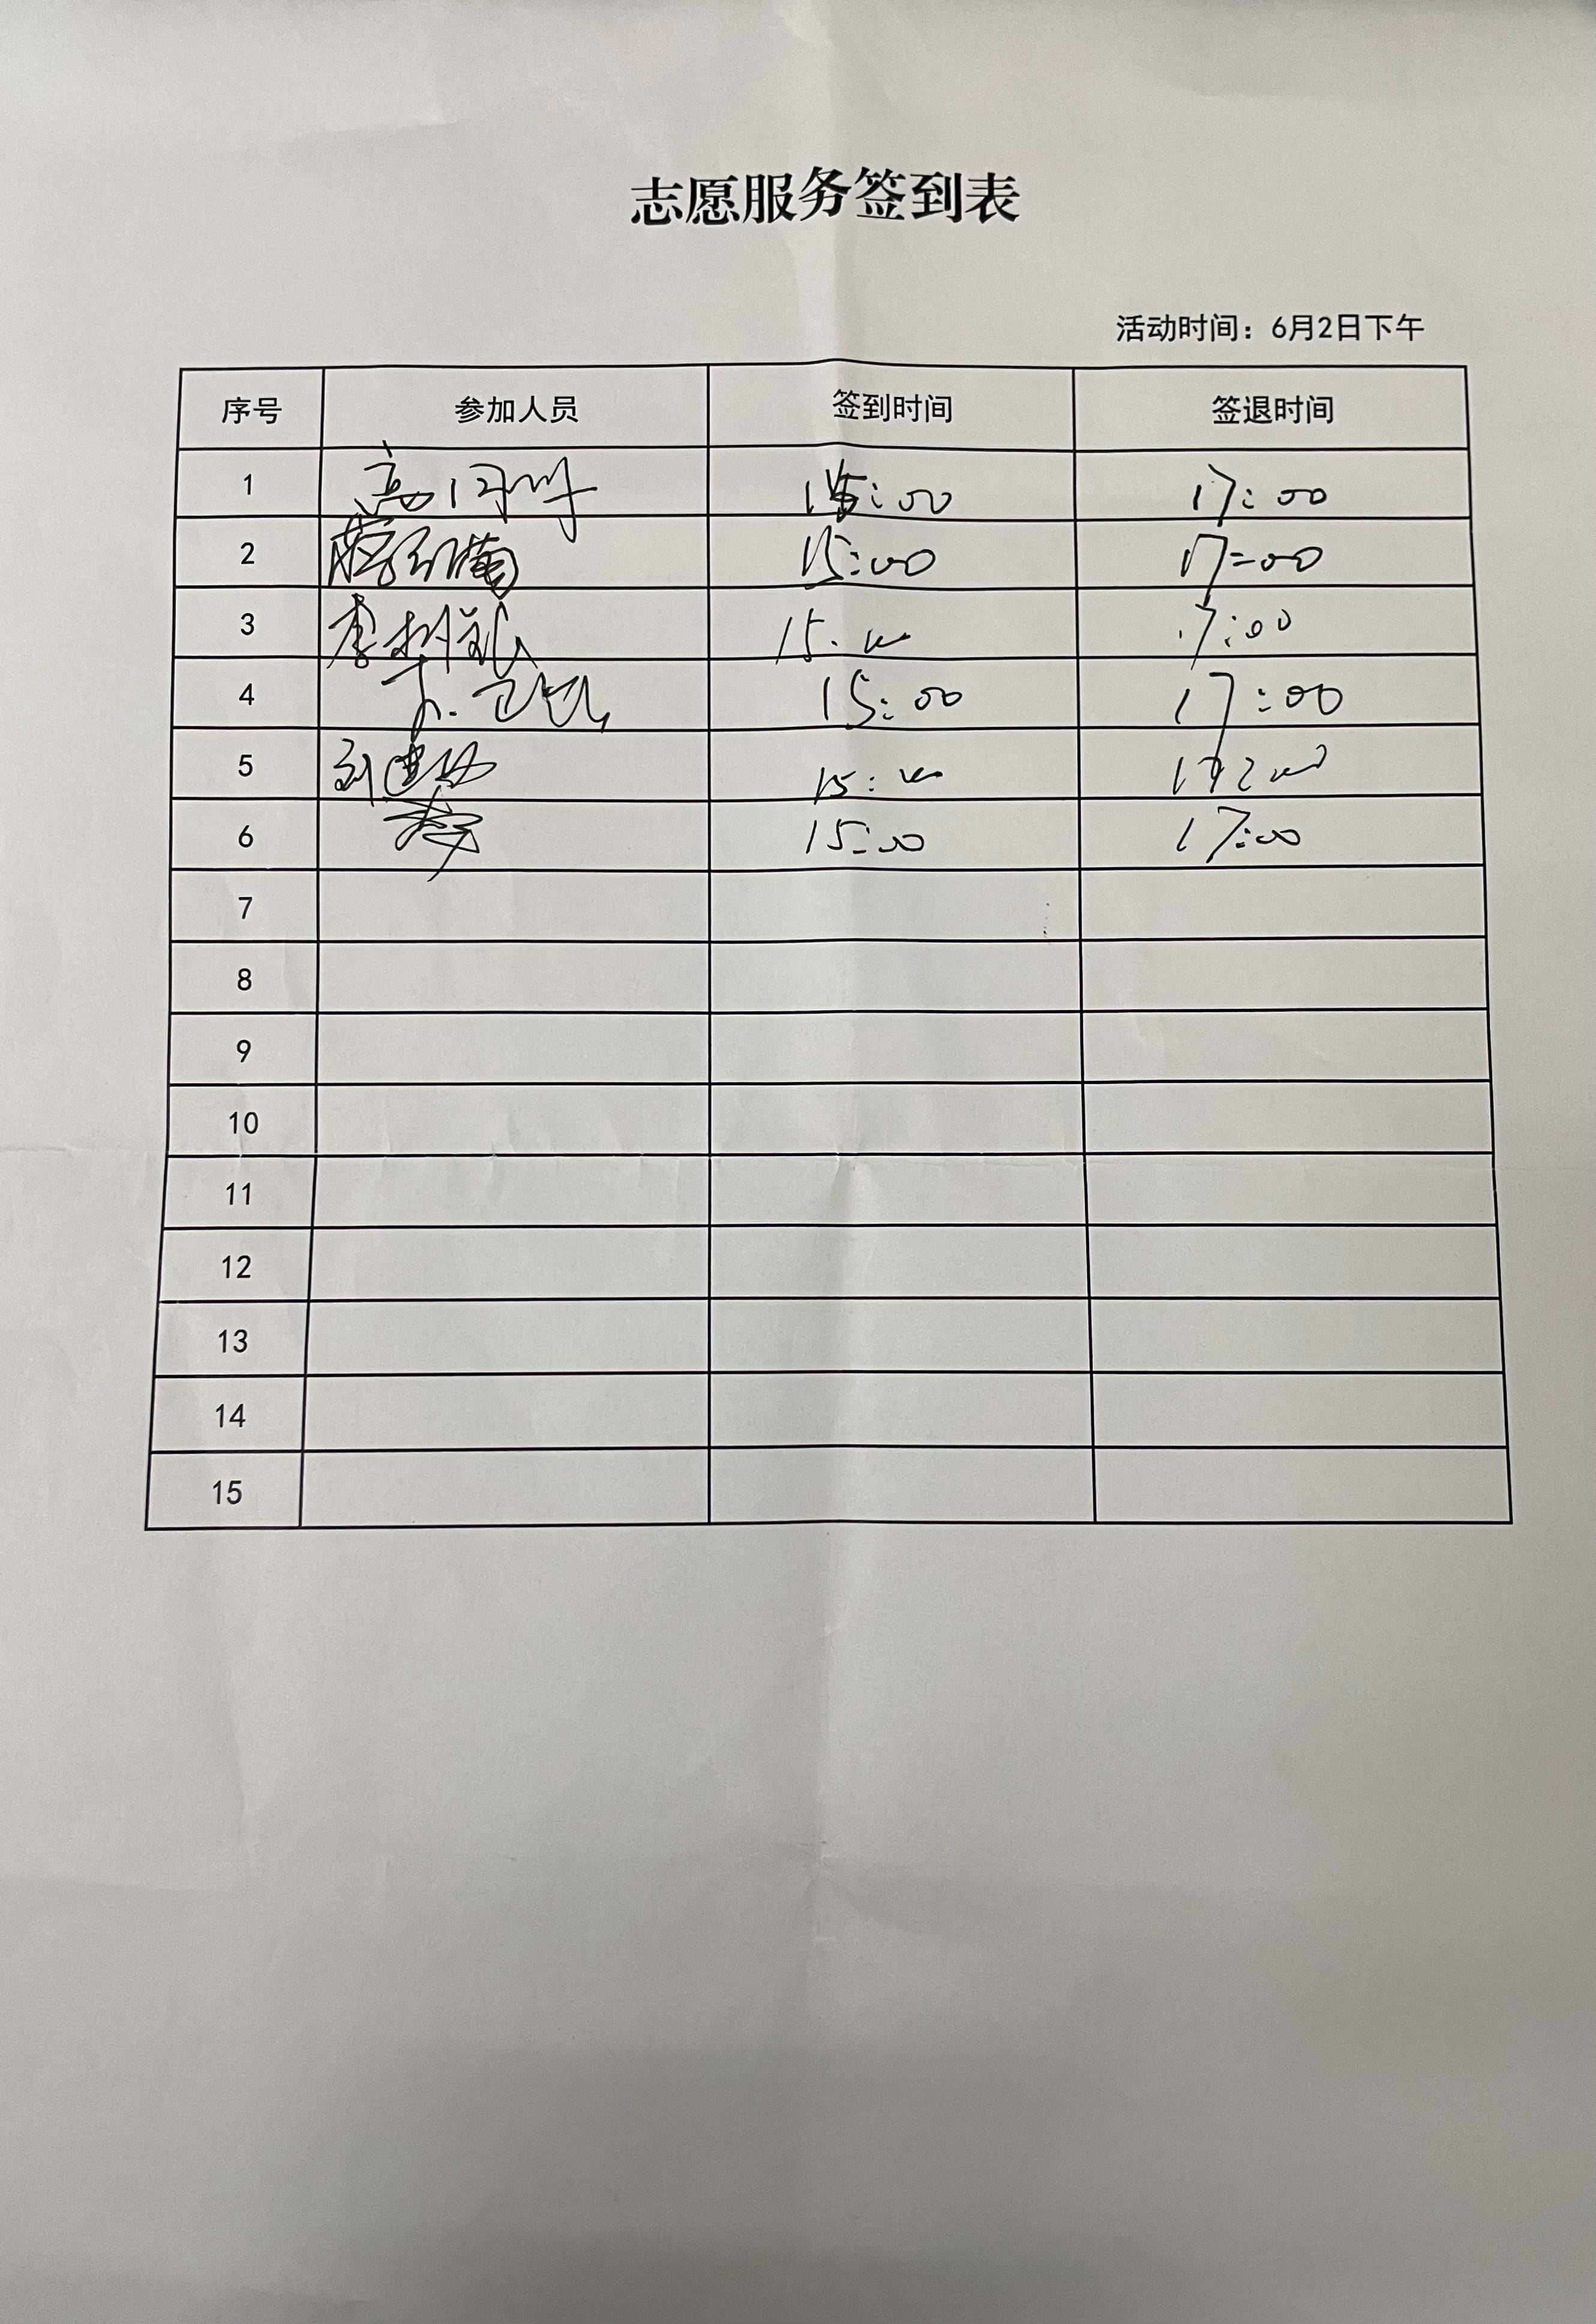 志愿服务签到表
活动时间：6月2日下午
序号 参加人员 签到时间 签退时间
1 15:00 17:00
2 15:00 17:00
3 李树礼 15:00 17:00
4 15:00 17:00
5 刘建 15:00 17:00
6 15:00 17:00
7
8
9
10
11
12
13
14
15